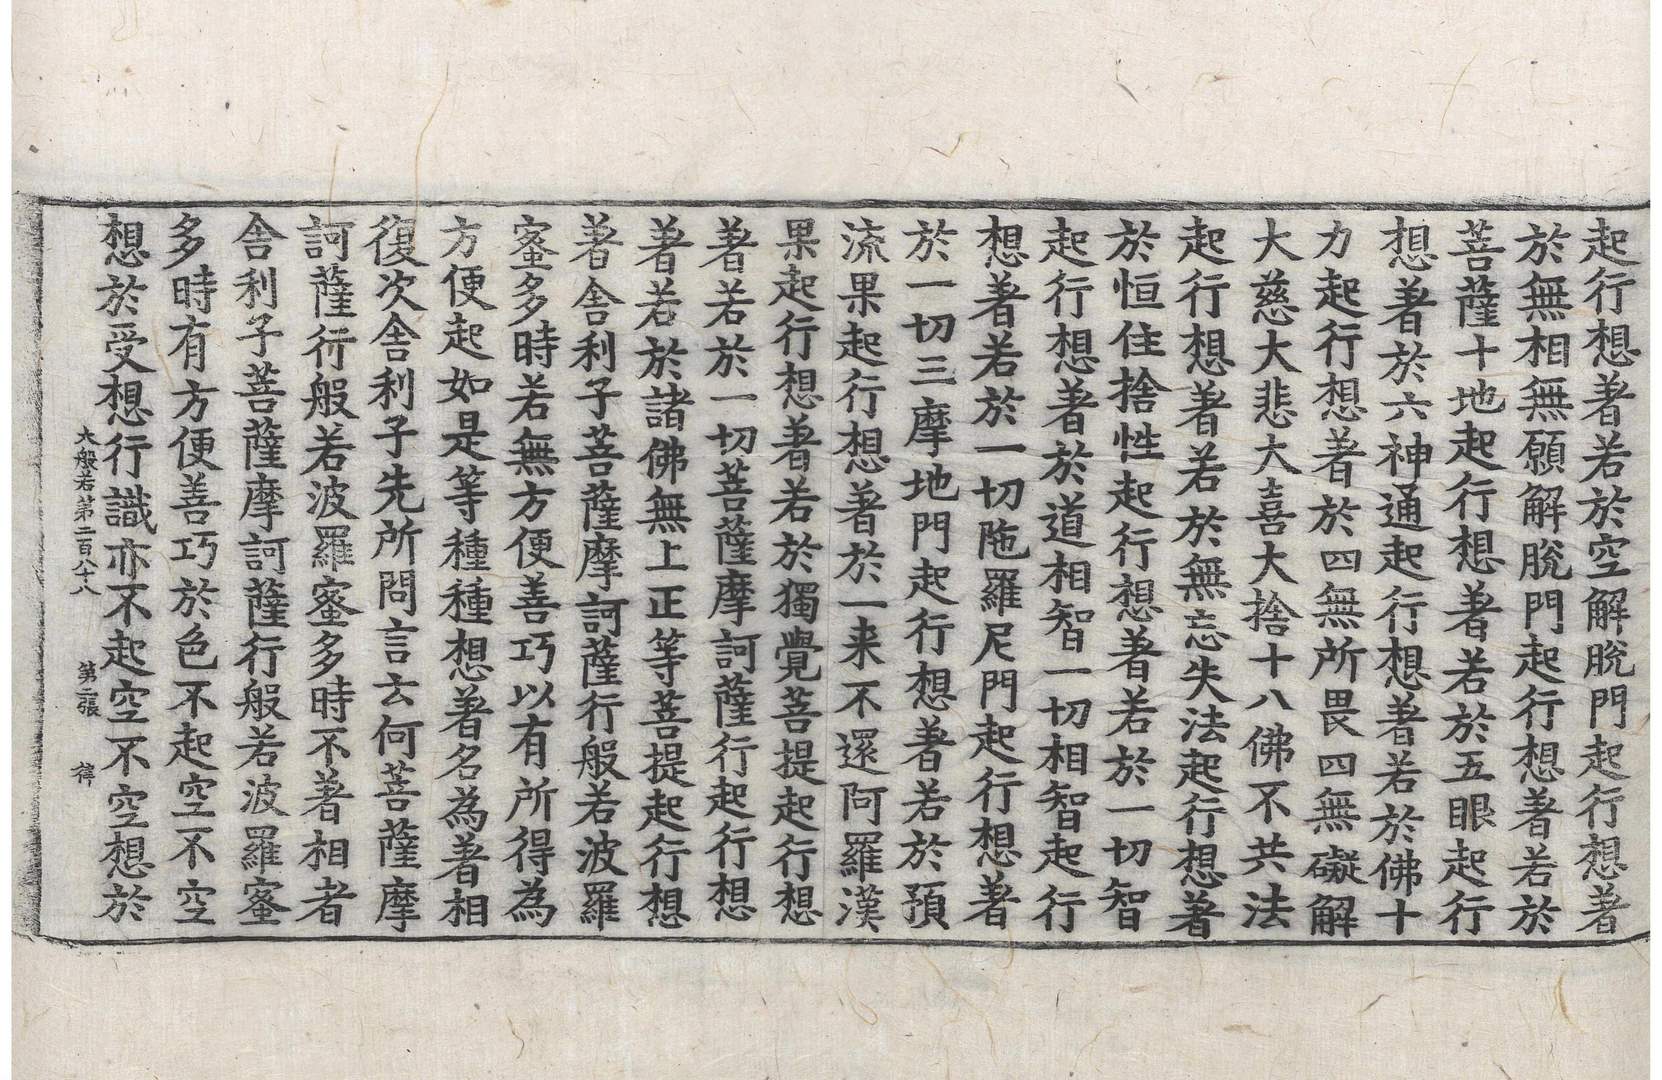 起行想著若於空解脫門起行想著
於無相無願解脫門起行想著若於
菩薩十地起行想著若於五眼起行
想著於六神通起行想著若於佛十
力起行想著於四無所畏四無礙解
大慈大悲大喜大捨十八佛不共法
起行想著若於無忘失法起行想著
於恒住捨性起行想著若於一切智
起行想著於道相智一切相智起行
想著若於一切陁羅尼門起行想著
於一切三摩地門起行想著若於預
流果起行想著於一来不還阿羅漢
果起行想著若於獨覺菩提起行想
著若於一切菩薩摩訶薩行起行想
著若於諸佛無上正等菩提起行想
著舍利子菩薩摩訶薩行般若波羅
蜜多時若無方便善巧以有所得為
方便起如是等種種想著名為著相
復次舍利子先所問言云何菩薩摩
訶薩行般若波羅蜜多時不著相者
舍利子菩薩摩訶薩行般若波羅蜜
多時有方便善巧於色不起空不空
想於受想行識亦不起空不空想於
大般若第二百八十八 第二張 律